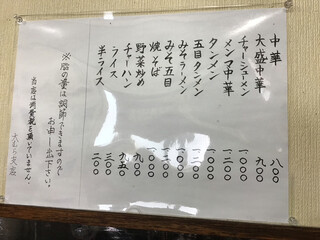 中華 八〇〇
大盛中華 九〇〇
チャーシューメン 一〇〇〇
メンマ中華 一〇〇〇
タンメン 一〇〇〇
五目タンメン 一二〇〇
みそラーメン 一〇〇〇
みそ五目 一二〇〇
焼そば 一〇〇〇
野菜炒め 九〇〇
チャーハン 九五〇
ライス 三〇〇
半ライス 二〇〇
※脂の量は調節できますので
お申し出下さい。
当店は消費税を頂いていません。
支店